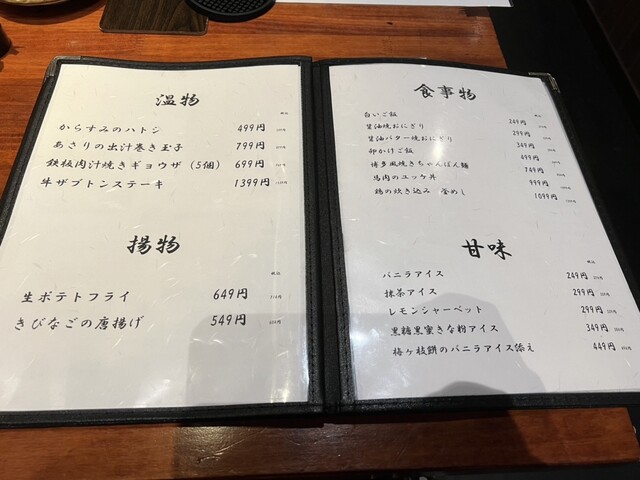 温物
税込
からすみのハトシ 499円
あさりの出汁巻き玉子 799円
鉄板肉汁焼きギョウザ(5個) 699円
牛ザブトンステーキ 1399円
揚物
税込
生ポテトフライ 649円
きびなごの唐揚げ 549円
食事物
税込
白いご飯 249円
醤油焼おにぎり 299円
醤油バター焼おにぎり 349円
卵かけご飯 499円
博多風焼きちゃんぽん麺 749円
馬肉のユッケ丼 999円
鶏の炊き込み 釜めし 1099円
甘味
税込
バニラアイス 249円
抹茶アイス 299円
レモンシャーベット 299円
黒糖黒蜜きな粉アイス 349円
梅ヶ枝餅のバニラアイス添え 449円